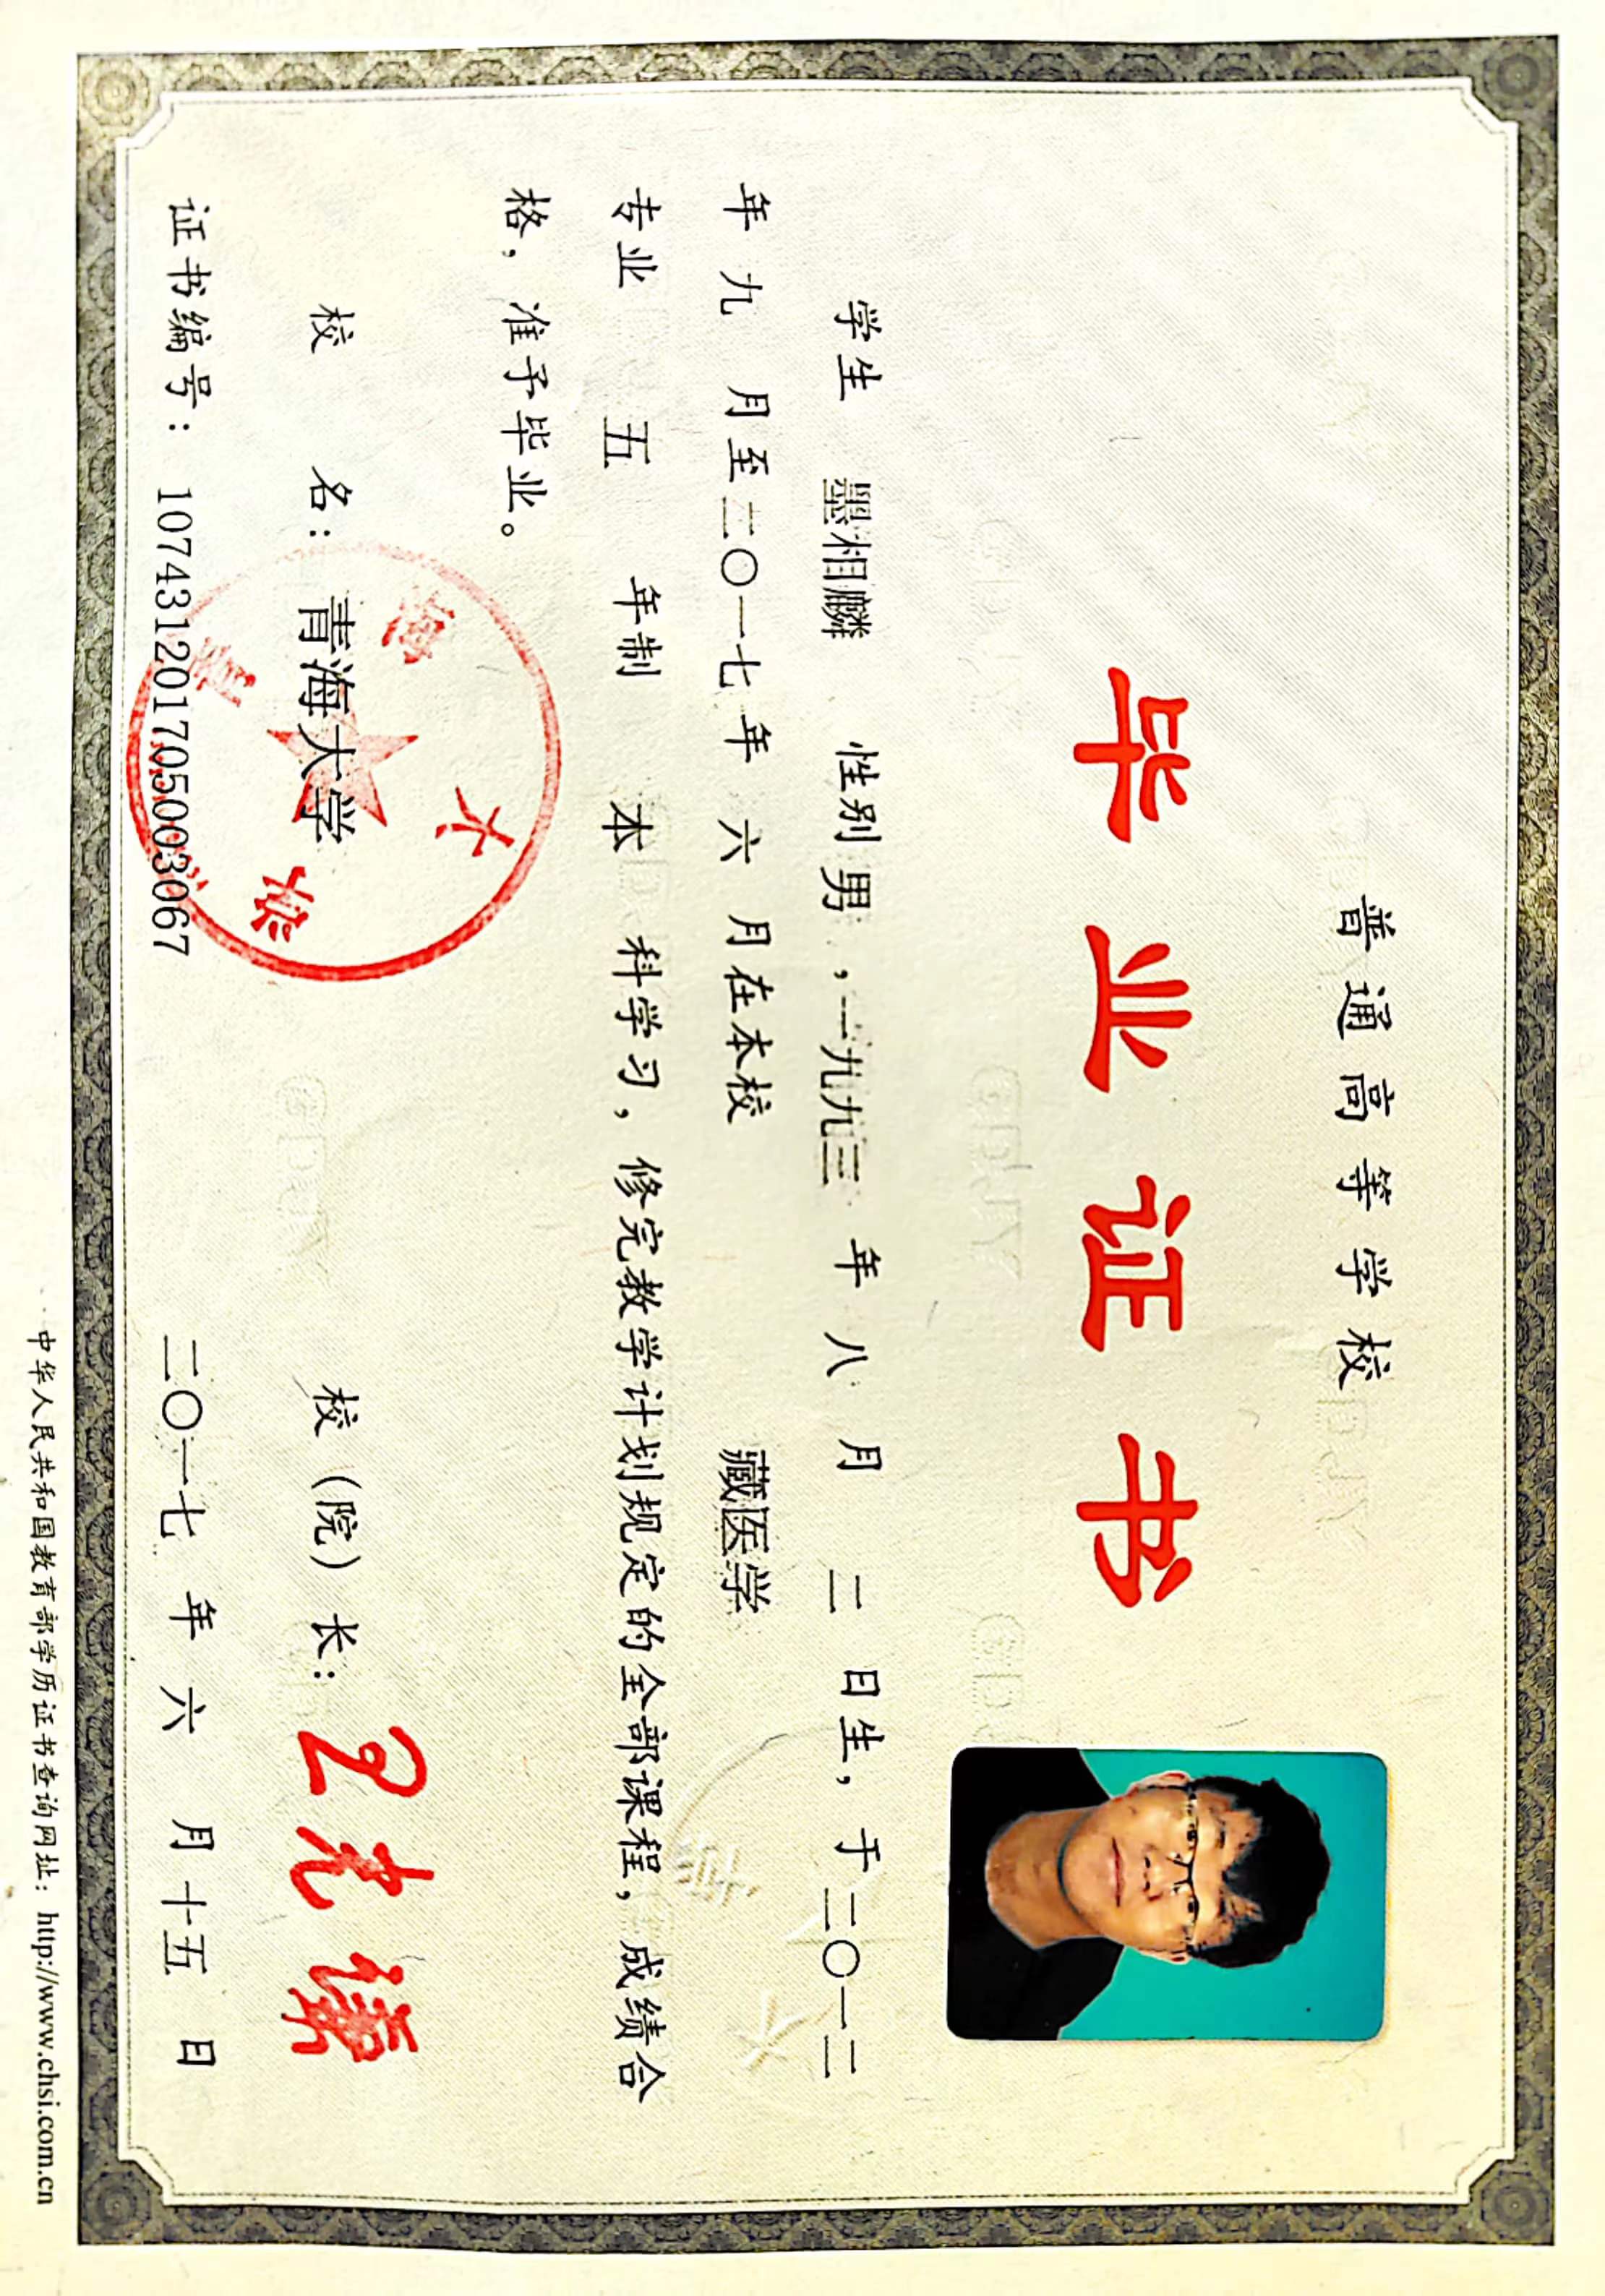 普通高等学校
毕业证书
学生 墨相麟 性别男，一九九三年八月二日生，于二〇一二
年九月至二〇一七年六月在本校 藏医学
专业 五 年制 本 科学习，修完教学计划规定的全部课程，成绩合
格，准予毕业。
校 名：青海大学 校（院）长：
青海大学
证书编号：107431201705003067 二〇一七年六月十五日
中华人民共和国教育部学历证书查询网址：http://www.chsi.com.cn